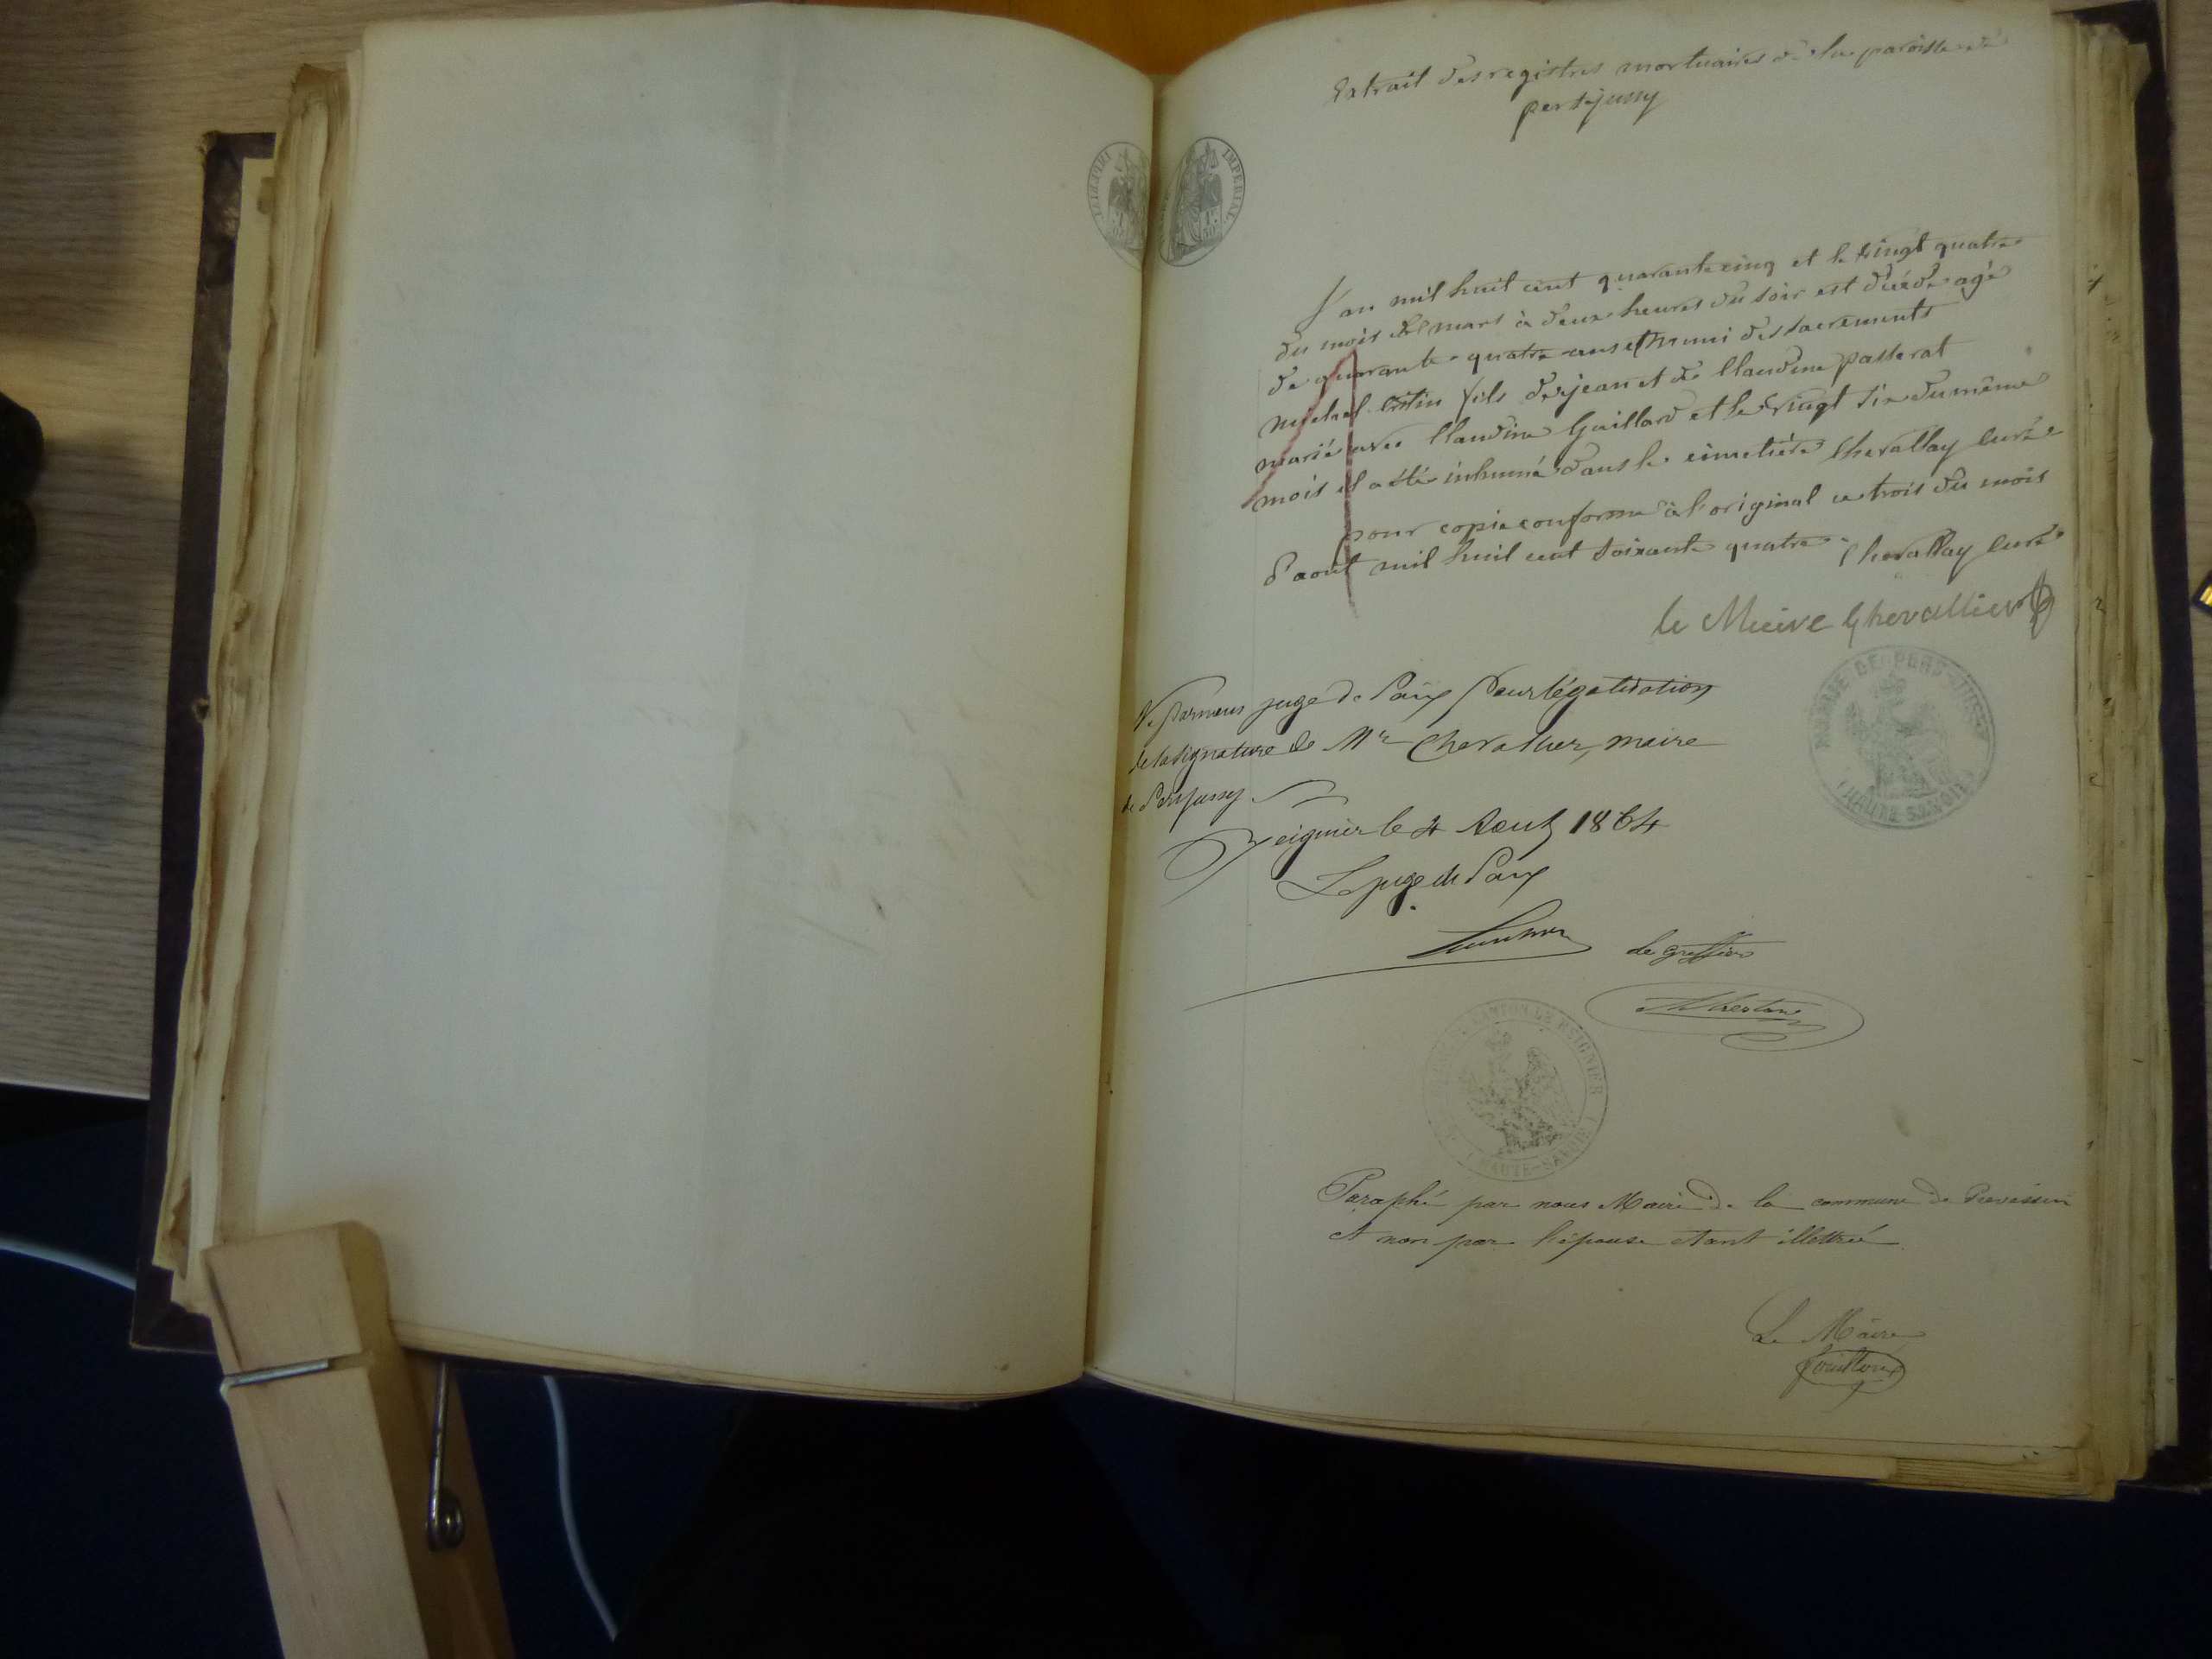 Extrait des registres mortuaires de la paroisse de
persjussy
IMPERIAL
1F
50
IMPERIAL
1F
50
l'an mil huit cent quarante cinq et le vingt quatre
du mois de mars à deux heures du soir est décédé agé
de quarante quatre ans et muni des sacrements
michel fils de jean et de Claudine passerat
marié avec Claudine Gaillard et le vingt six du même
mois il a été inhumé dans le cimetière Chevallay Curé
pour copie conforme à l'original ce trois du mois
d'aout mil huit cent soixante quatre Chevallay Curé
le Maire Chevallier
MAIRIE DE PERS-JUSSY
(HAUTE SAVOIE)
Vu par nous juge de Paix pour légalisation
de la signature de Mr Chevallier, maire
de Persjussy
Reignier le 4 Aout 1864
Le juge de Paix
le greffier
CANTON DE REIGNIER
(HAUTE-SAVOIE)
Paraphé par nous Maire de la commune de Prevessin
et non par l'épouse étant illettrée
Le Maire